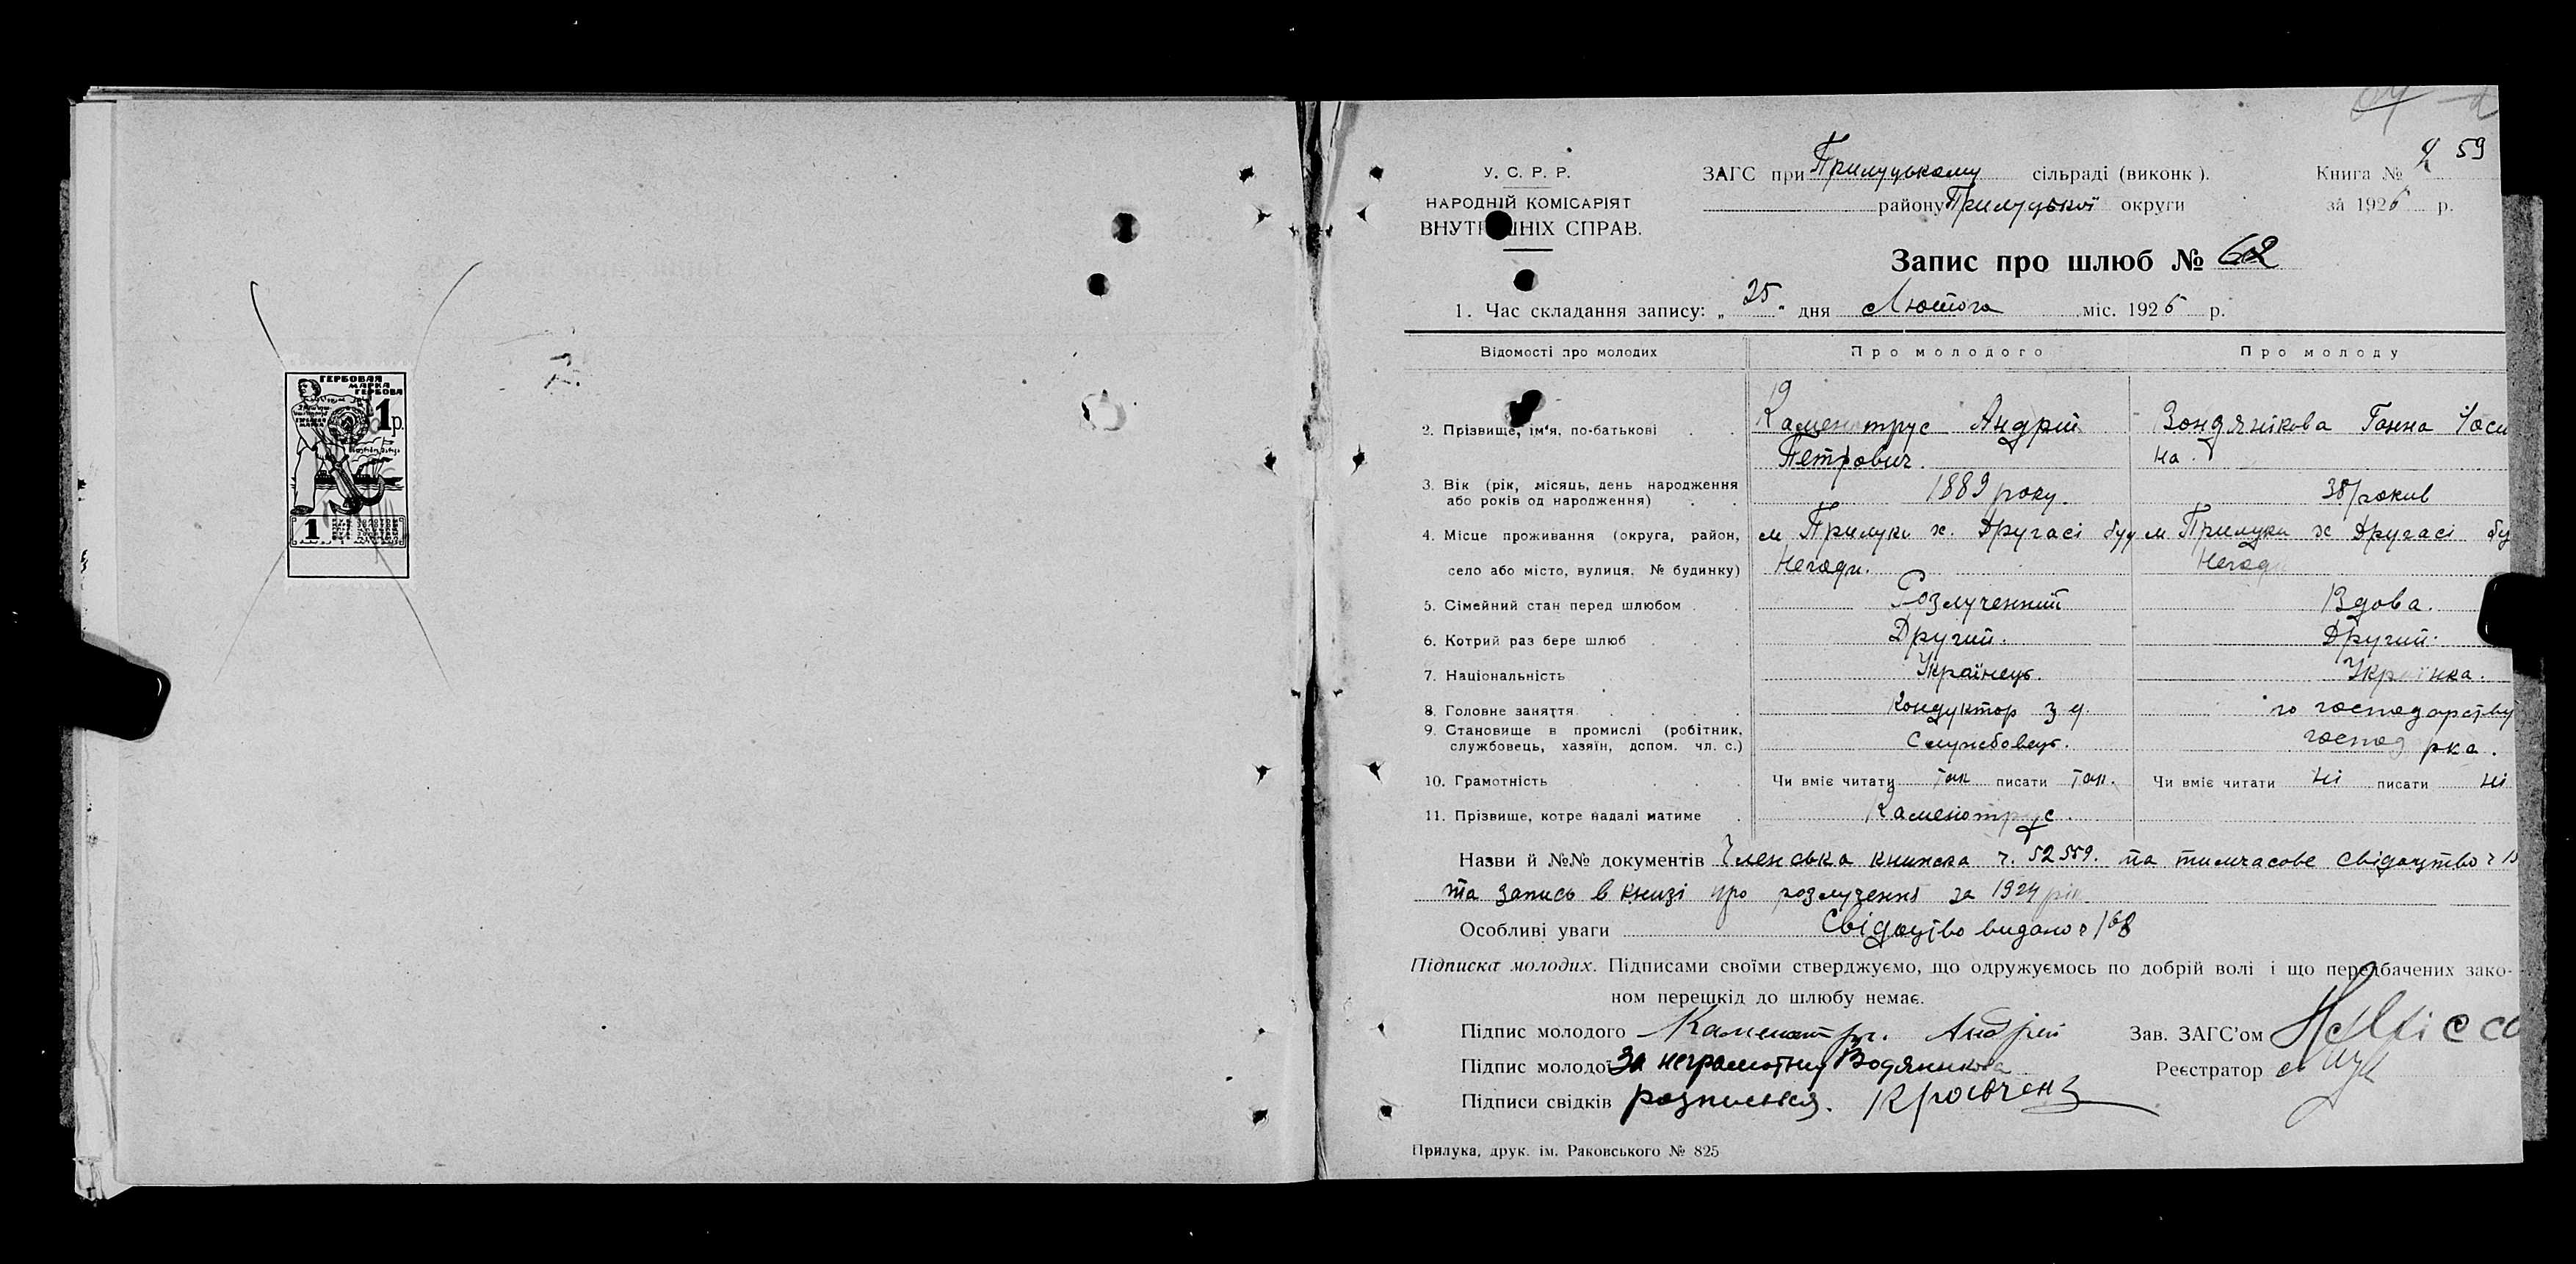 ГЕРБОВАЯ
МАРКА
ГЕРБОВА
1 р.
1
59
У. С. Р. Р.
НАРОДНІЙ КОМІСАРІЯТ
ВНУТРІШНІХ СПРАВ.
ЗАГС при Прилуцькому сільраді (виконк).
району Прилуцької округи
Книга № 2
за 1926 р.
Запис про шлюб № 62
1. Час складання запису: „25" дня Лютого міс. 1926 р.
Відомості про молодих Про молодого Про молоду
2. Прізвище, ім'я, по-батькові Каменотрус Андрій Ганна
Петрович.
3. Вік (рік, місяць, день народження 1889 року. 38 років
або років од народження)
4. Місце проживання (округа, район, м Прилуки х. Другасі буд м Прилуки х Другасі бу
село або місто, вулиця, № будинку) Негоди. Негоди
5. Сімейний стан перед шлюбом Розлученний Вдова.
6. Котрий раз бере шлюб Другий. Другий.
7. Національність Українець. Українка.
8. Головне заняття Кондуктор з д. по господарству
9. Становище в промислі (робітник, Службовець. господарка.
службовець, хазяїн, допом. чл. с.)
10. Грамотність Чи вміє читати так писати так. Чи вміє читати ні писати ні
11. Прізвище, котре надалі матиме Каменотрус.
Назви й №№ документів Членська книжка ч. 52559. та тимчасове свідоцтво ч
та запись в книзі про розлучення за 1924 рік.
Особливі уваги Свідоцтво видано ч 168
Підписка молодих. Підписами своїми стверджуємо, що одружуємось по добрій волі і що передбачених зако-
ном перешкід до шлюбу немає.
Підпис молодого Андрей Зав. ЗАГС'ом
Підпис молодої За неграмотну Водяникова Реєстратор
Підписи свідків
Прилука, друк. ім. Раковського № 825